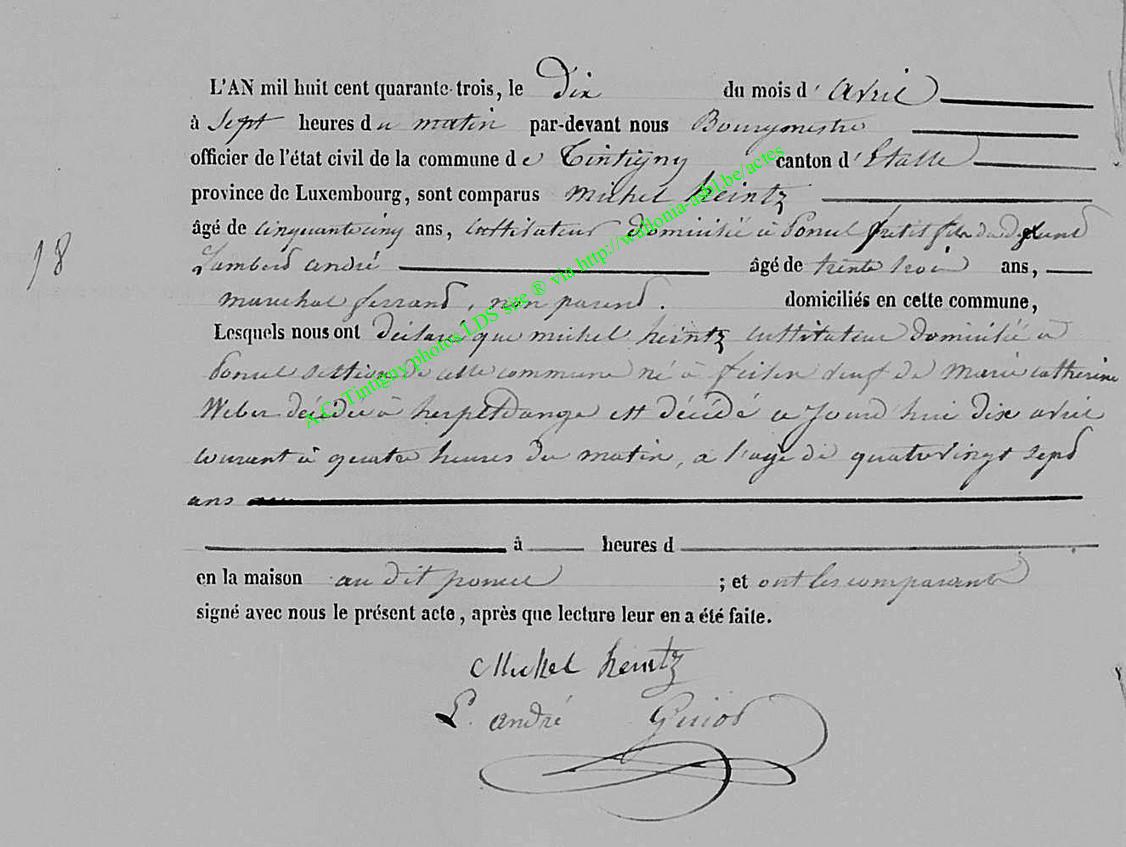 L'AN mil huit cent quarante-trois, le Dix du mois d'avril
à Sept heures du matin par-devant nous Bourgmestre
officier de l'état civil de la commune de Tintigny canton d'Etalle
province de Luxembourg, sont comparus Michel heintz
âgé de Cinquante cinq ans, Instituteur domicilié à ponsel petit fils du défunt
Lambert andré âgé de trente trois ans,
maréchal ferrand, non parend. domiciliés en cette commune,
Lesquels nous ont déclaré que michel heintz Instituteur domicilié à
ponsel section de cette commune né à veuf de Marie catherine
Weber décédée à est décédé ce jourd'hui dix avril
courant à quatre heures du matin, a l'age de quatrevingt sept
ans
à heures d
en la maison au dit ponsel ; et ont les comparents
signé avec nous le présent acte, après que lecture leur en a été faite.
Michel heintz
L. andré Guiot
18
A.C. Tintigny photos LDS site ® via http://wallonia-asbl.be/actes